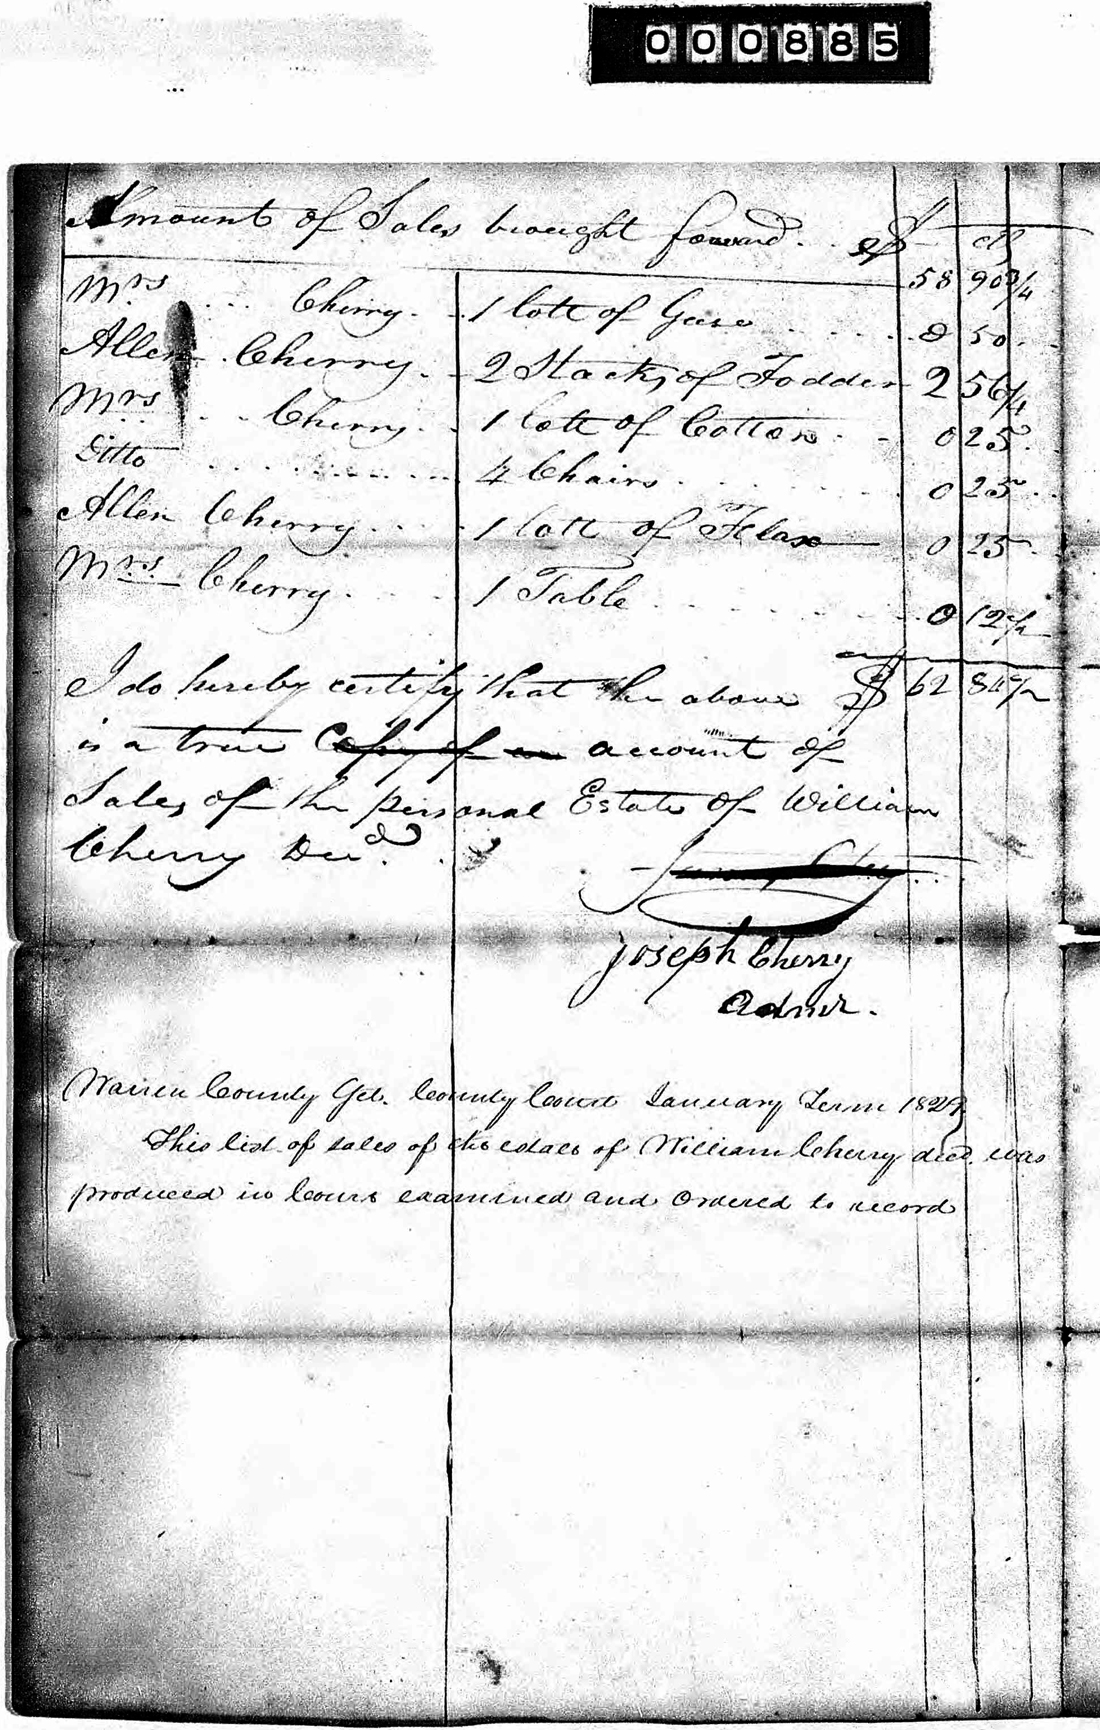 000885
Amount of Sales brought forward. $ cts
58 90 3/4
Mrs Cherry. 1 lott of Geese 0 50
Allen Cherry. 2 Stacks of Fodder 2 56 1/4
Mrs Cherry. 1 lott of Cotton 0 25
Ditto 4 Chairs 0 25
Allen Cherry 1 lott of Flax 0 25
Mrs. Cherry 1 Table 0 12 1/2
I do hereby certify that the above $ 62 84 1/2
is a true Copy of an account of
Sales of the personal Estate of William
Cherry Decd.
Joseph Cherry
Admr.
Warren County Sct. County Court January Term 1829
This list of sales of the estate of William Cherry decd. was
produced in Court examined and Ordered to record